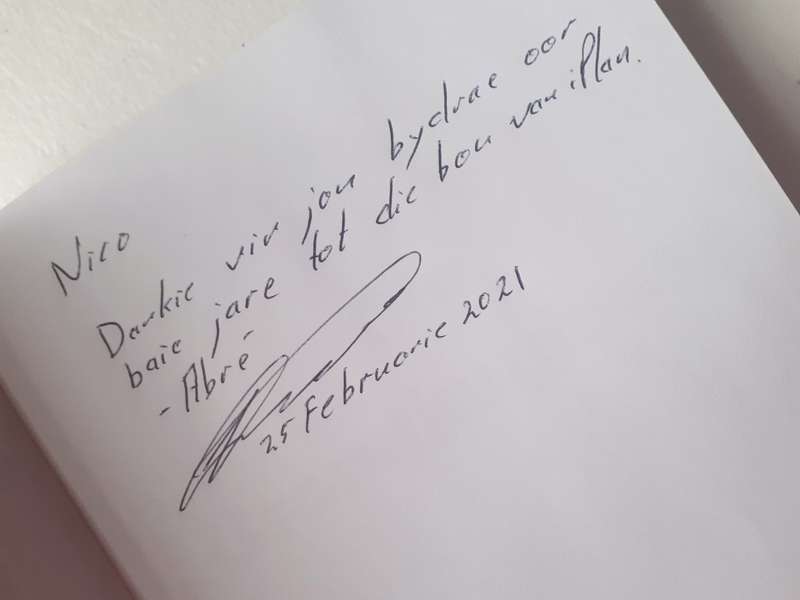 Nico
Dankie vir jou bydrae oor
baie jare tot die bou van iPlan.
- Abré
25 Februarie 2021